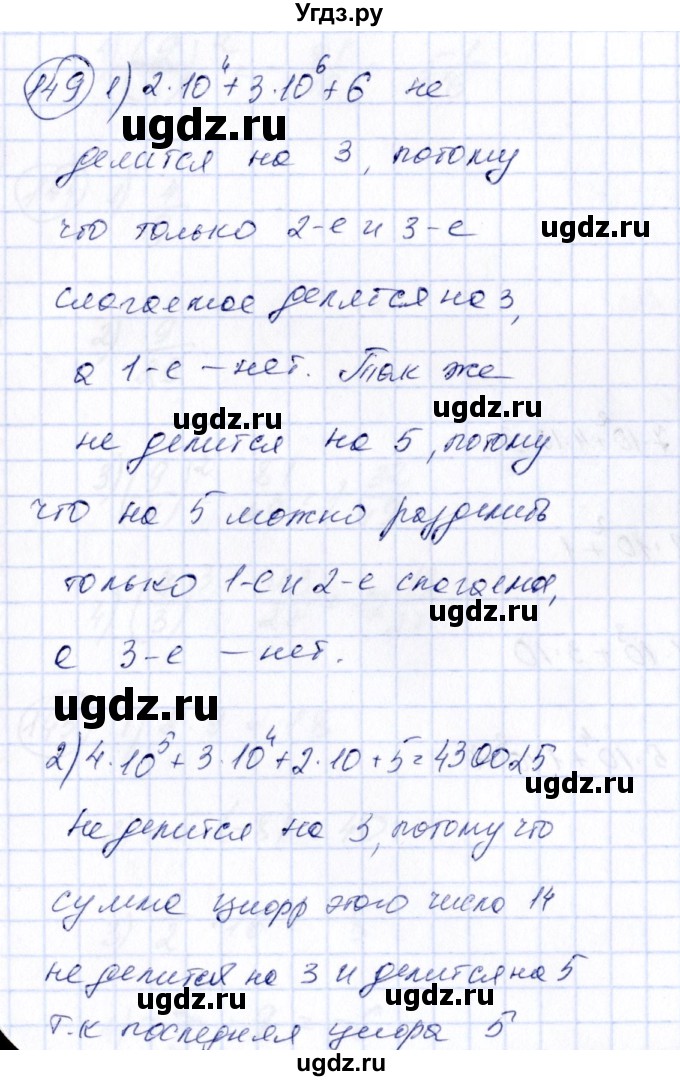 Угдз.ру
149 1) 2·10⁴+3·10⁶+6 не
ugdz.ru
делится на 3, потому
что только 2-е и 3-е
ugdz.ru
слагаемое делятся на 3,
а 1-е – нет. Так же
ugdz.ru ugdz.ru
не делится на 5, потому
что на 5 можно разделить
только 1-е и 2-е слагаемая,
ugdz.ru
а 3-е – нет.
ugdz.ru
2) 4·10⁵+3·10⁴+2·10+5=430025
ugdz.ru
Не делится на 3, потому что
сумма цифр этого число 14
не делится на 3 и делится на 5
ugdz.ru ugdz.ru
т.к последняя цифра 5
ugdz.ru